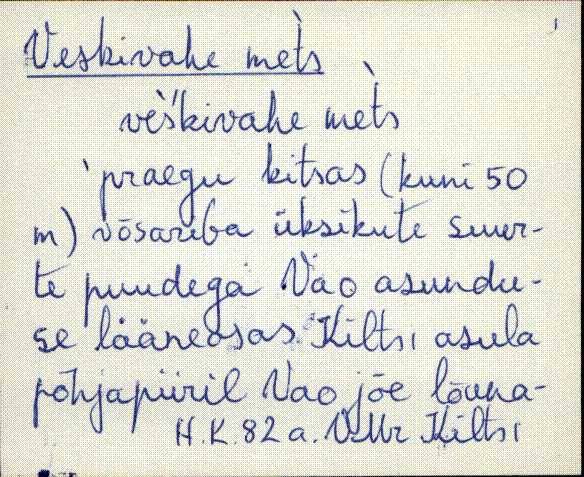 Veskivahe mets̀
vèśkivahe mèt̀s
`praegu kitsas (kuni 50
m) võsariba üksikute suur-
te puudega Vao asundu-
se lääneosas Kiltsi asula
põhjapiiril Vao jõe lõuna-
H.K. 82 a. VMr Kiltsi